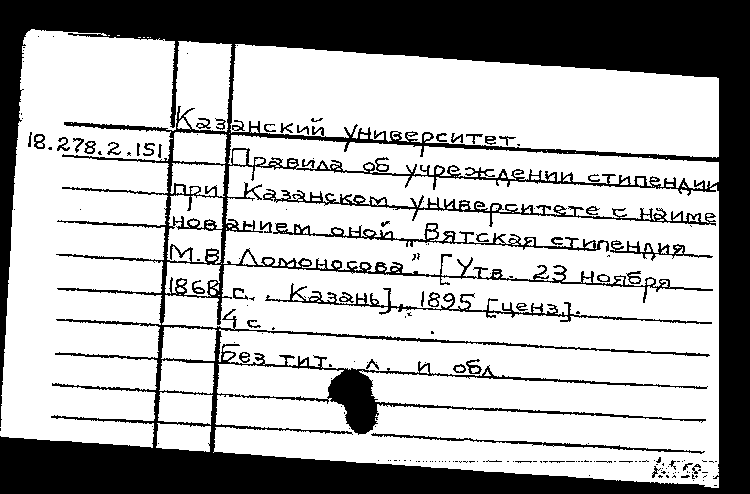 Казанский университет.
18.278.2.151. Правила об учреждении стипендии
при Казанском университете с наиме
нованием оной „Вятская стипендия
М.В. Ломоносова." [Утв. 23 ноября
1868 г. , Казань], 1895 [ценз.].
4 с.
Без тит. л. и обл.